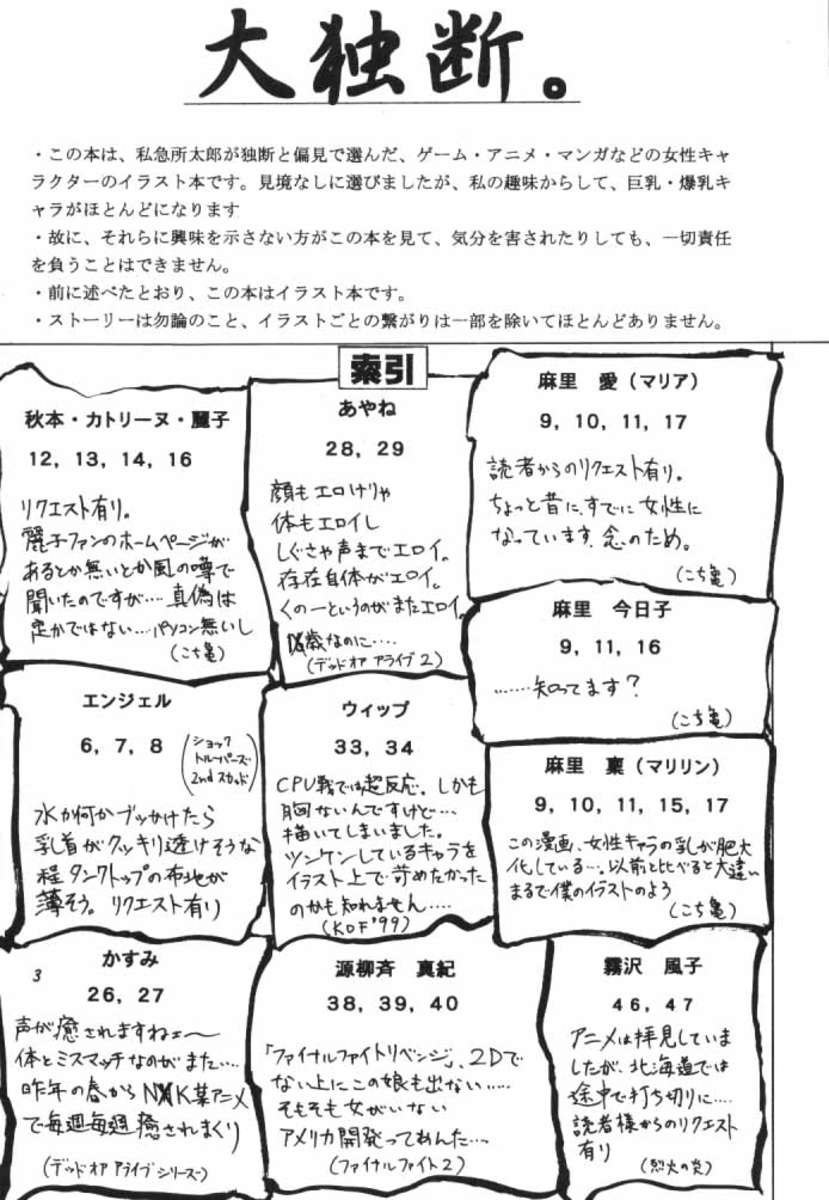 大独断。
・この本は、私急所太郎が独断と偏見で選んだ、ゲーム・アニメ・マンガなどの女性キャ
ラクターのイラスト本です。見境なしに選びましたが、私の趣味からして、巨乳・爆乳キ
ャラがほとんどになります
・故に、それらに興味を示さない方がこの本を見て、気分を害されたりしても、一切責任
を負うことはできません。
・前に述べたとおり、この本はイラスト本です。
・ストーリーは勿論のこと、イラストごとの繋がりは一部を除いてほとんどありません。
索引
秋本・カトリーヌ・麗子
12, 13, 14, 16
リクエスト有り。
麗子ファンのホームページが
あるとか無いとか風の噂で
聞いたのですが…. 真偽は
定かではない…パソコン無いし
(こち亀)
あやね
28, 29
顔もエロけりゃ
体もエロイし
しぐさや声までエロイ。
存在自体がエロイ。
くの一というのがまたエロイ。
歳なのに….
(デッドオア アライブ2)
麻里 愛(マリア)
9, 10, 11, 17
読者からのリクエスト有り。
ちょっと昔に、すでに女性に
なっています。念のため。
(こち亀)
麻里 今日子
9, 11, 16
……知ってます?
(こち亀)
エンジェル
6, 7, 8
(ショック
トルーパーズ
2nd スカッド)
水か何かブッかけたら
乳首がクッキリ透けそうな
程タンクトップの布地が
薄そう。リクエスト有り
ウィップ
33, 34
CPU戦では超反応。しかも
胸ないんですけど…
描いてしまいました。
ツンケンしているキャラを
イラスト上で苛めたかった
のかも知れません….
(KOF'99)
麻里 稟(マリリン)
9, 10, 11, 15, 17
この漫画、女性キャラの乳が肥大
化している…。以前と比べると大違い
まるで僕のイラストのよう
(こち亀)
かすみ
3
26, 27
声が癒されますねェ〜
体とミスマッチなのがまた….
昨年の春からNHK某アニメ
で毎週毎週癒されまくり
(デッドオア アライブシリーズ)
源柳斉 真紀
38, 39, 40
「ファイナルファイトリベンジ」、2Dで
ない上にこの娘も出ない…..
そもそも女がいない
アメリカ開発ってあんた….
(ファイナルファイト2)
霧沢 風子
46, 47
アニメは拝見していま
したが、北海道では
途中で打ち切りに….
読者様からのリクエスト
有り
(烈火の炎)